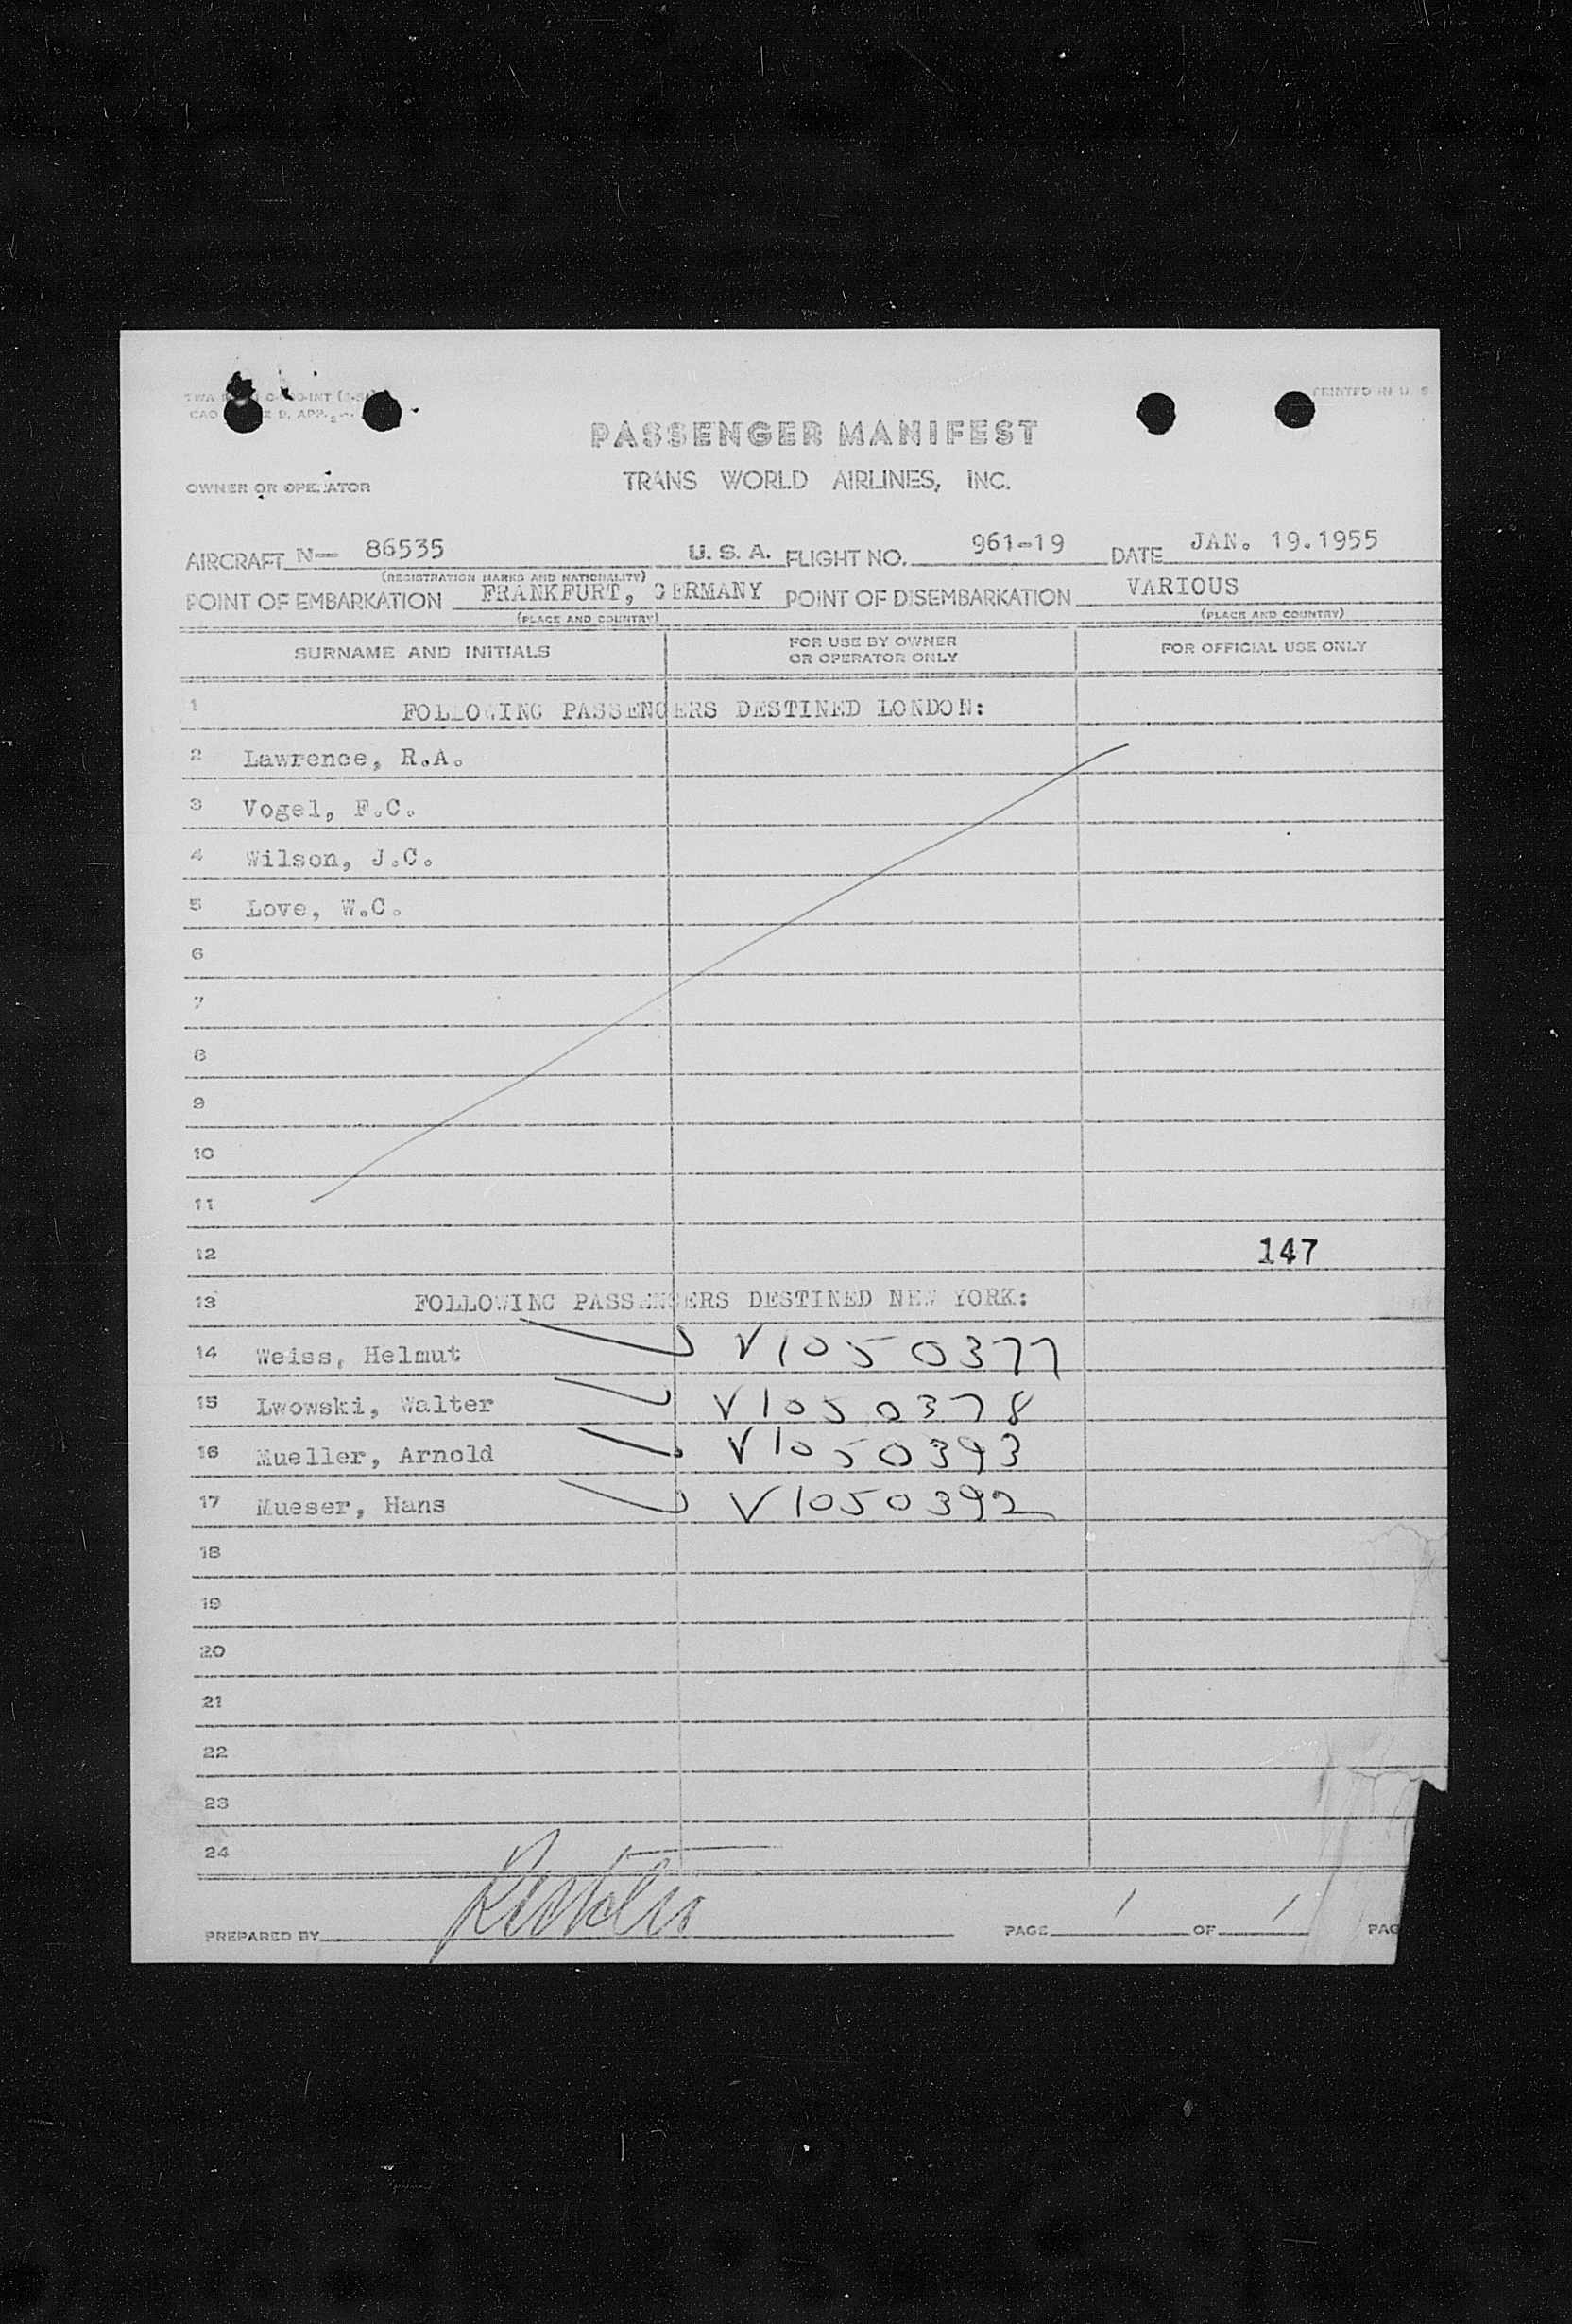 PRINTED IN U. S
PASSENGER MANIFEST
OWNER OR OPERATOR TRANS WORLD AIRLINES, INC.
AIRCRAFT N— 86535 U. S. A. FLIGHT NO. 961-19 DATE JAN. 19.1955
(REGISTRATION MARKS AND NATIONALITY)
POINT OF EMBARKATION FRANKFURT, GERMANY POINT OF DISEMBARKATION VARIOUS
(PLACE AND COUNTRY) (PLACE AND COUNTRY)
SURNAME AND INITIALS FOR USE BY OWNER OR OPERATOR ONLY FOR OFFICIAL USE ONLY
1 FOLLOWING PASSENGERS DESTINED LONDON:
2 Lawrence, R.A.
3 Vogel, F.C.
4 Wilson, J.C.
5 Love, W.C.
6
7
8
9
10
11
12 147
13 FOLLOWING PASSENGERS DESTINED NEW YORK:
14 Weiss, Helmut V1050377
15 Lwowski, Walter V1050378
16 Mueller, Arnold V1050393
17 Mueser, Hans V1050392
18
19
20
21
22
23
24
PREPARED BY PAGE 1 OF 1 PAG